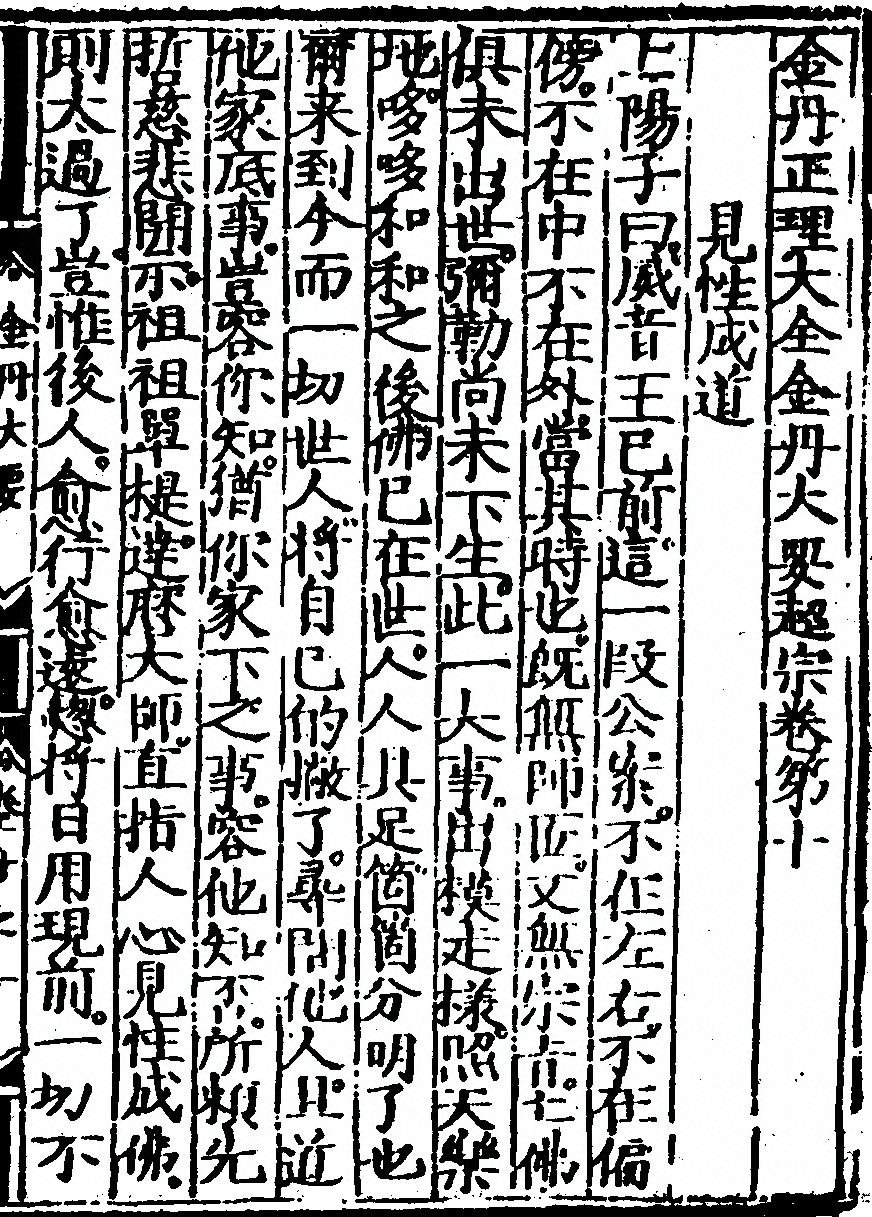 金丹正理大全金丹大要超宗卷第十
見性成道
上陽子曰威音王已前這一段公案不但左右不在偏
傍不在中不在外當其時也旣無師匠又無宗吉七佛
俱未出世彌勒尚未下生此一大事出模走樣照天樂
地哆哆和和之後佛已在世人人具足箇箇分明了也
爾來到今而一切世人將自己的撇了尋問他人且道
他家底事豈容你知猶你家下之事容他知不所賴先
哲慈悲開示祖祖單提達磨大師直指人心見性成佛
則太過了豈惟後人愈行愈遠趍將日用現前一切不
金丹大要